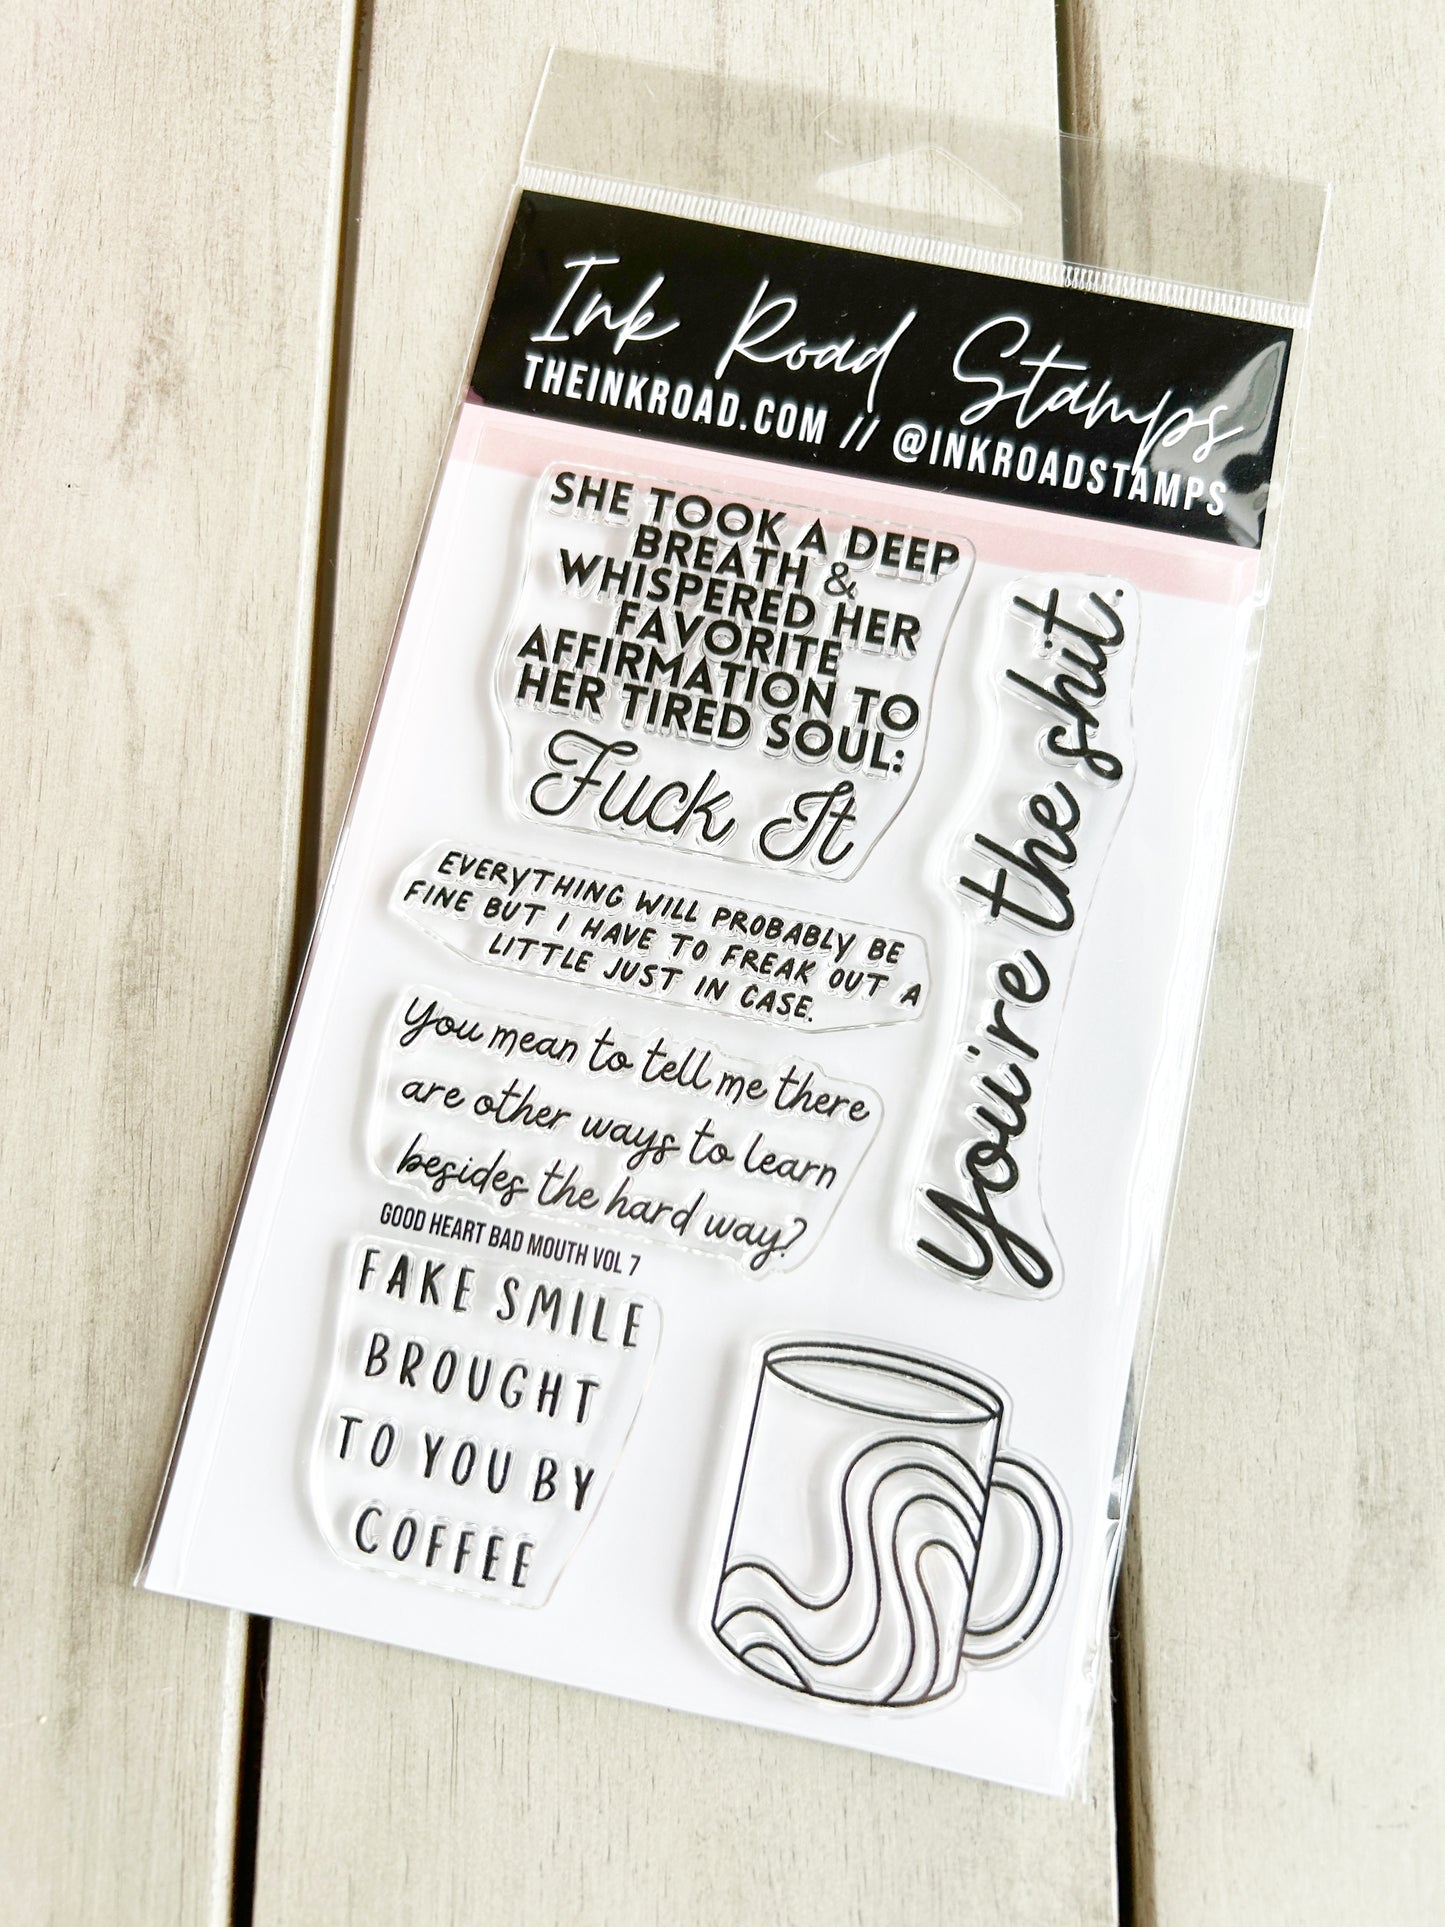 Ink Road Stamps
THEINKROAD.COM // @INKROADSTAMPS
SHE TOOK A DEEP
BREATH &
WHISPERED HER
FAVORITE
AFFIRMATION TO
HER TIRED SOUL:
Fuck It
You're the shit.
EVERYTHING WILL PROBABLY BE
FINE BUT I HAVE TO FREAK OUT A
LITTLE JUST IN CASE.
You mean to tell me there
are other ways to learn
besides the hard way?
GOOD HEART BAD MOUTH VOL 7
FAKE SMILE
BROUGHT
TO YOU BY
COFFEE